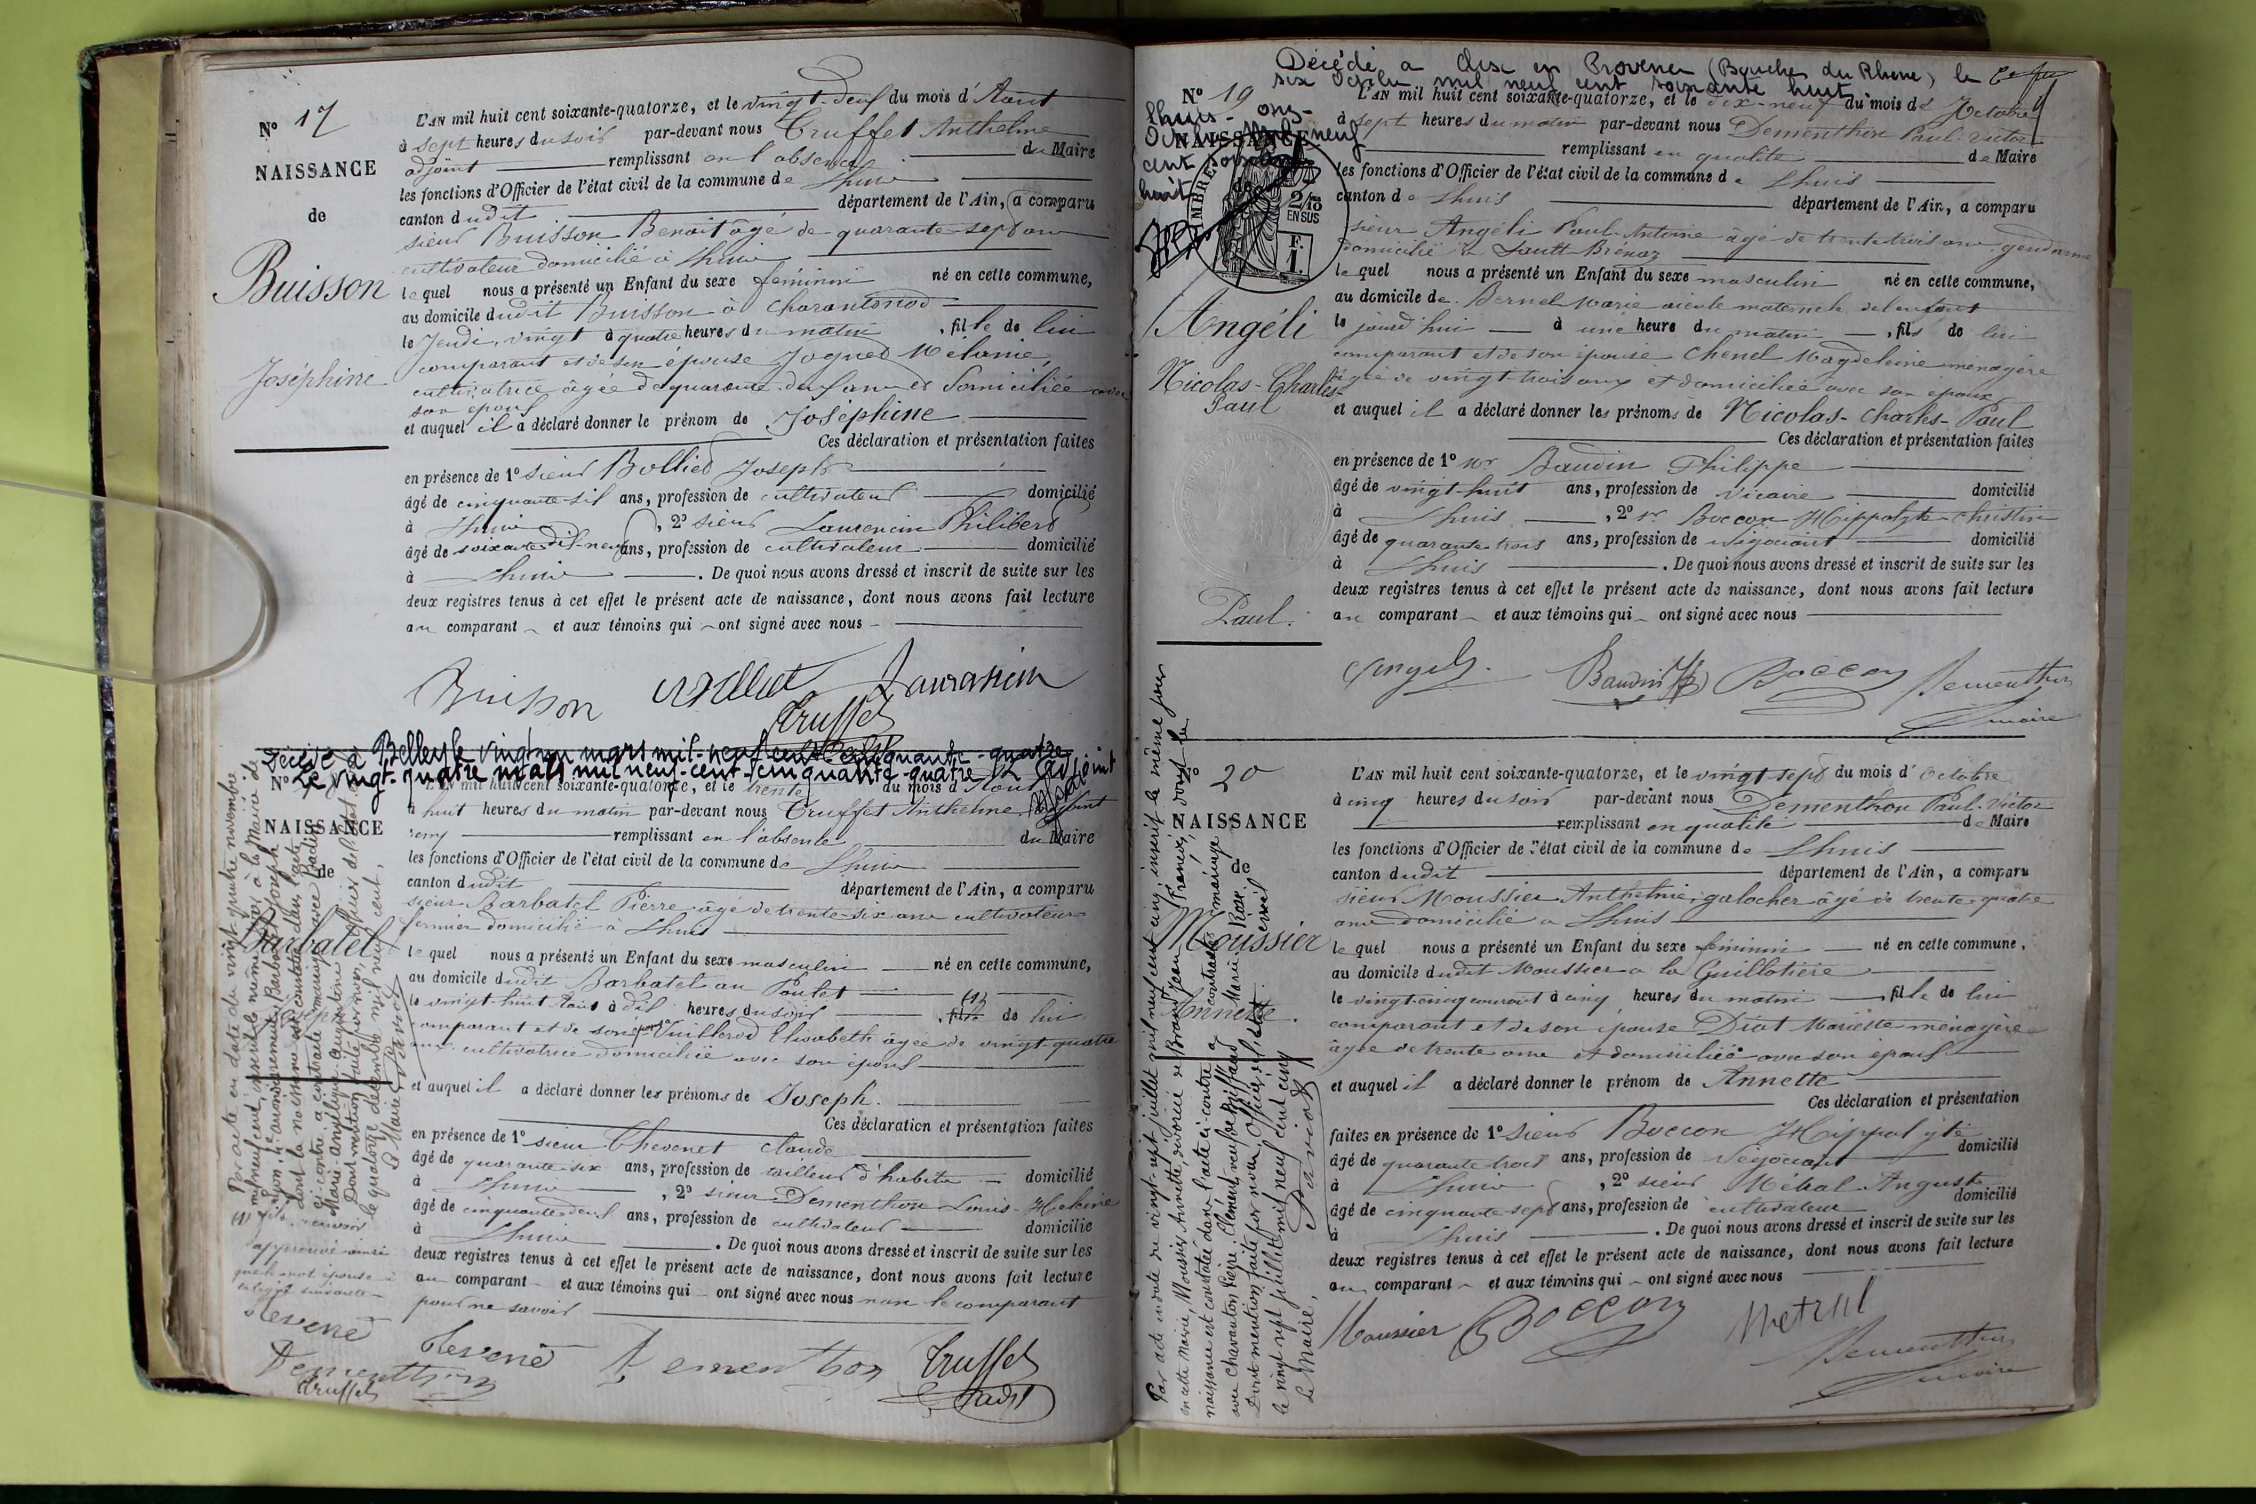 N° 17
NAISSANCE
de
Buisson
Joséphine
L'AN mil huit cent soixante-quatorze, et le vingt-deux du mois d'Août
à sept heures du soir par-devant nous Truffet Anthelme
adjoint remplissant en l'absence du Maire
les fonctions d'Officier de l'état civil de la commune de Lhuis
canton dudit département de l'Ain, a comparu
sieur Buisson Benoit âgé de quarante-sept ans
cultivateur domicilié à Lhuis
lequel nous a présenté un Enfant du sexe féminin né en cette commune,
au domicile dudit Buisson à
le Jeudi, vingt à quatre heures du matin, fille de lui
comparant et de son épouse Mélanie,
cultivatrice âgée de quarante-deux ans et domiciliée avec
son époux
et auquel il a déclaré donner le prénom de Joséphine
Ces déclaration et présentation faites
en présence de 1° sieur Bolliet Joseph
âgé de cinquante-six ans, profession de cultivateur domicilié
à Lhuis, 2° sieur Laurencin Philibert
âgé de soixante dix-neuf ans, profession de cultivateur domicilié
à Lhuis. De quoi nous avons dressé et inscrit de suite sur les
deux registres tenus à cet effet le présent acte de naissance, dont nous avons fait lecture
au comparant et aux témoins qui ont signé avec nous
Buisson Bolliet Laurancin
Truffet
Décédé à Belley le vingt un mars mil-neuf cent cinquante-quatre
Le vingt-quatre mars mil neuf-cent-cinquante-quatre L'adjoint
N°
NAISSANCE
de
Barbatel
Joseph
L'AN mil huit cent soixante-quatorze, et le trente du mois d'Août
à huit heures du matin par-devant nous Truffet Anthelme adjoint
remplissant en l'absence du Maire
les fonctions d'Officier de l'état civil de la commune de Lhuis
canton dudit département de l'Ain, a comparu
sieur Barbatel Pierre âgé de trente-six ans cultivateur
fermier domicilié à Lhuis
lequel nous a présenté un Enfant du sexe masculin né en cette commune,
au domicile dudit Barbatel au Poulet
le vingt-huit Août à dix heures du soir (1) de lui
comparant et de son épouse Vuillerod Elisabeth âgée de vingt quatre
ans cultivatrice domiciliée avec son époux
et auquel il a déclaré donner les prénoms de Joseph.
Ces déclaration et présentation faites
en présence de 1° sieur Thevenet Claude
âgé de quarante-six ans, profession de tailleur d'habits domicilié
à Lhuis, 2° sieur Dementhon Louis
âgé de cinquante-deux ans, profession de cultivateur domicilié
à Lhuis. De quoi nous avons dressé et inscrit de suite sur les
deux registres tenus à cet effet le présent acte de naissance, dont nous avons fait lecture
au comparant et aux témoins qui ont signé avec nous non le comparant
pour ne savoir
Par acte en date du vingt-quatre novembre
mil neuf cent, inscrit le même jour à la Mairie de
dont la naissance est constatée dans l'acte
ci-contre, a contracté mariage avec
Marie-Angéline
Dont mention faite par nous, officier de l'état civil
le quatorze décembre mil neuf cent,
Le Maire
Thevenet Dementhon Truffet
Dementhon
Truffet
Décédé a Aix en Provence (Bouches du Rhône) le
six Octobre mil neuf cent soixante huit
Lhuis - onze
Octobre mil neuf
cent soixante
huit
N° 19
NAISSANCE
de
TIMBRE
2/10
EN SUS
F.
1.
Angéli
Nicolas-Charles-
Paul
Paul.
L'AN mil huit cent soixante-quatorze, et le dix-neuf du mois d'Octobre
à sept heures du matin par-devant nous Dementhon Paul-Victor
remplissant en qualité de Maire
les fonctions d'Officier de l'état civil de la commune de Lhuis
canton de Lhuis département de l'Ain, a comparu
sieur Angéli Paul-Antoine âgé de trente-trois ans gendarme
domicilié à Sault-Brénaz
lequel nous a présenté un Enfant du sexe masculin né en cette commune,
au domicile de Bernel Marie aïeule maternelle de l'enfant
le jourd'hui à une heure du matin, fils de lui
comparant et de son épouse Chenel Magdeleine ménagère
âgée de vingt-trois ans et domiciliée avec son époux
et auquel il a déclaré donner les prénoms de Nicolas-Charles-Paul
Ces déclaration et présentation faites
en présence de 1° Mr Baudin Philippe
âgé de vingt-huit ans, profession de vicaire domicilié
à Lhuis, 2° Mr Boccon Hippolyte-Christin
âgé de quarante-trois ans, profession de négociant domicilié
à Lhuis. De quoi nous avons dressé et inscrit de suite sur les
deux registres tenus à cet effet le présent acte de naissance, dont nous avons fait lecture
au comparant et aux témoins qui ont signé avec nous
Angeli. Baudin Boccon Dementhon
maire
N° 20
NAISSANCE
de
Moussier
Annette.
L'AN mil huit cent soixante-quatorze, et le vingt sept du mois d'Octobre
à cinq heures du soir par-devant nous Dementhon Paul-Victor
remplissant en qualité de Maire
les fonctions d'Officier de l'état civil de la commune de Lhuis
canton dudit département de l'Ain, a comparu
sieur Moussier Anthelme, galocher âgé de trente-quatre
ans domicilié à Lhuis
lequel nous a présenté un Enfant du sexe féminin né en cette commune,
au domicile dudit Moussier a la Guillotière
le vingt-cinq courant à cinq heures du matin, fille de lui
comparant et de son épouse Diot Mariette ménagère
âgée de trente ans et domiciliée avec son époux
et auquel il a déclaré donner le prénom de Annette
Ces déclaration et présentation
faites en présence de 1° sieur Boccon Hippolyte
âgé de quarante trois ans, profession de Négociant domicilié
à Lhuis, 2° sieur Métral Auguste
âgé de cinquante sept ans, profession de cultivateur domicilié
à Lhuis. De quoi nous avons dressé et inscrit de suite sur les
deux registres tenus à cet effet le présent acte de naissance, dont nous avons fait lecture
au comparant et aux témoins qui ont signé avec nous
Par acte en date du vingt-sept juillet mil neuf cent cinq, inscrit le même jour
en cette mairie, Moussier Annette, divorcée de Brand Jean François, dont la
naissance est constatée dans l'acte ci-contre, a contracté mariage
avec Chavanton Pierre Clément, veuf de Marie Rose
Dont mention faite par nous, Officier de l'état civil
le vingt sept juillet mil neuf cent cinq
Le Maire,
Moussier Boccon Metral
Dementhon
maire